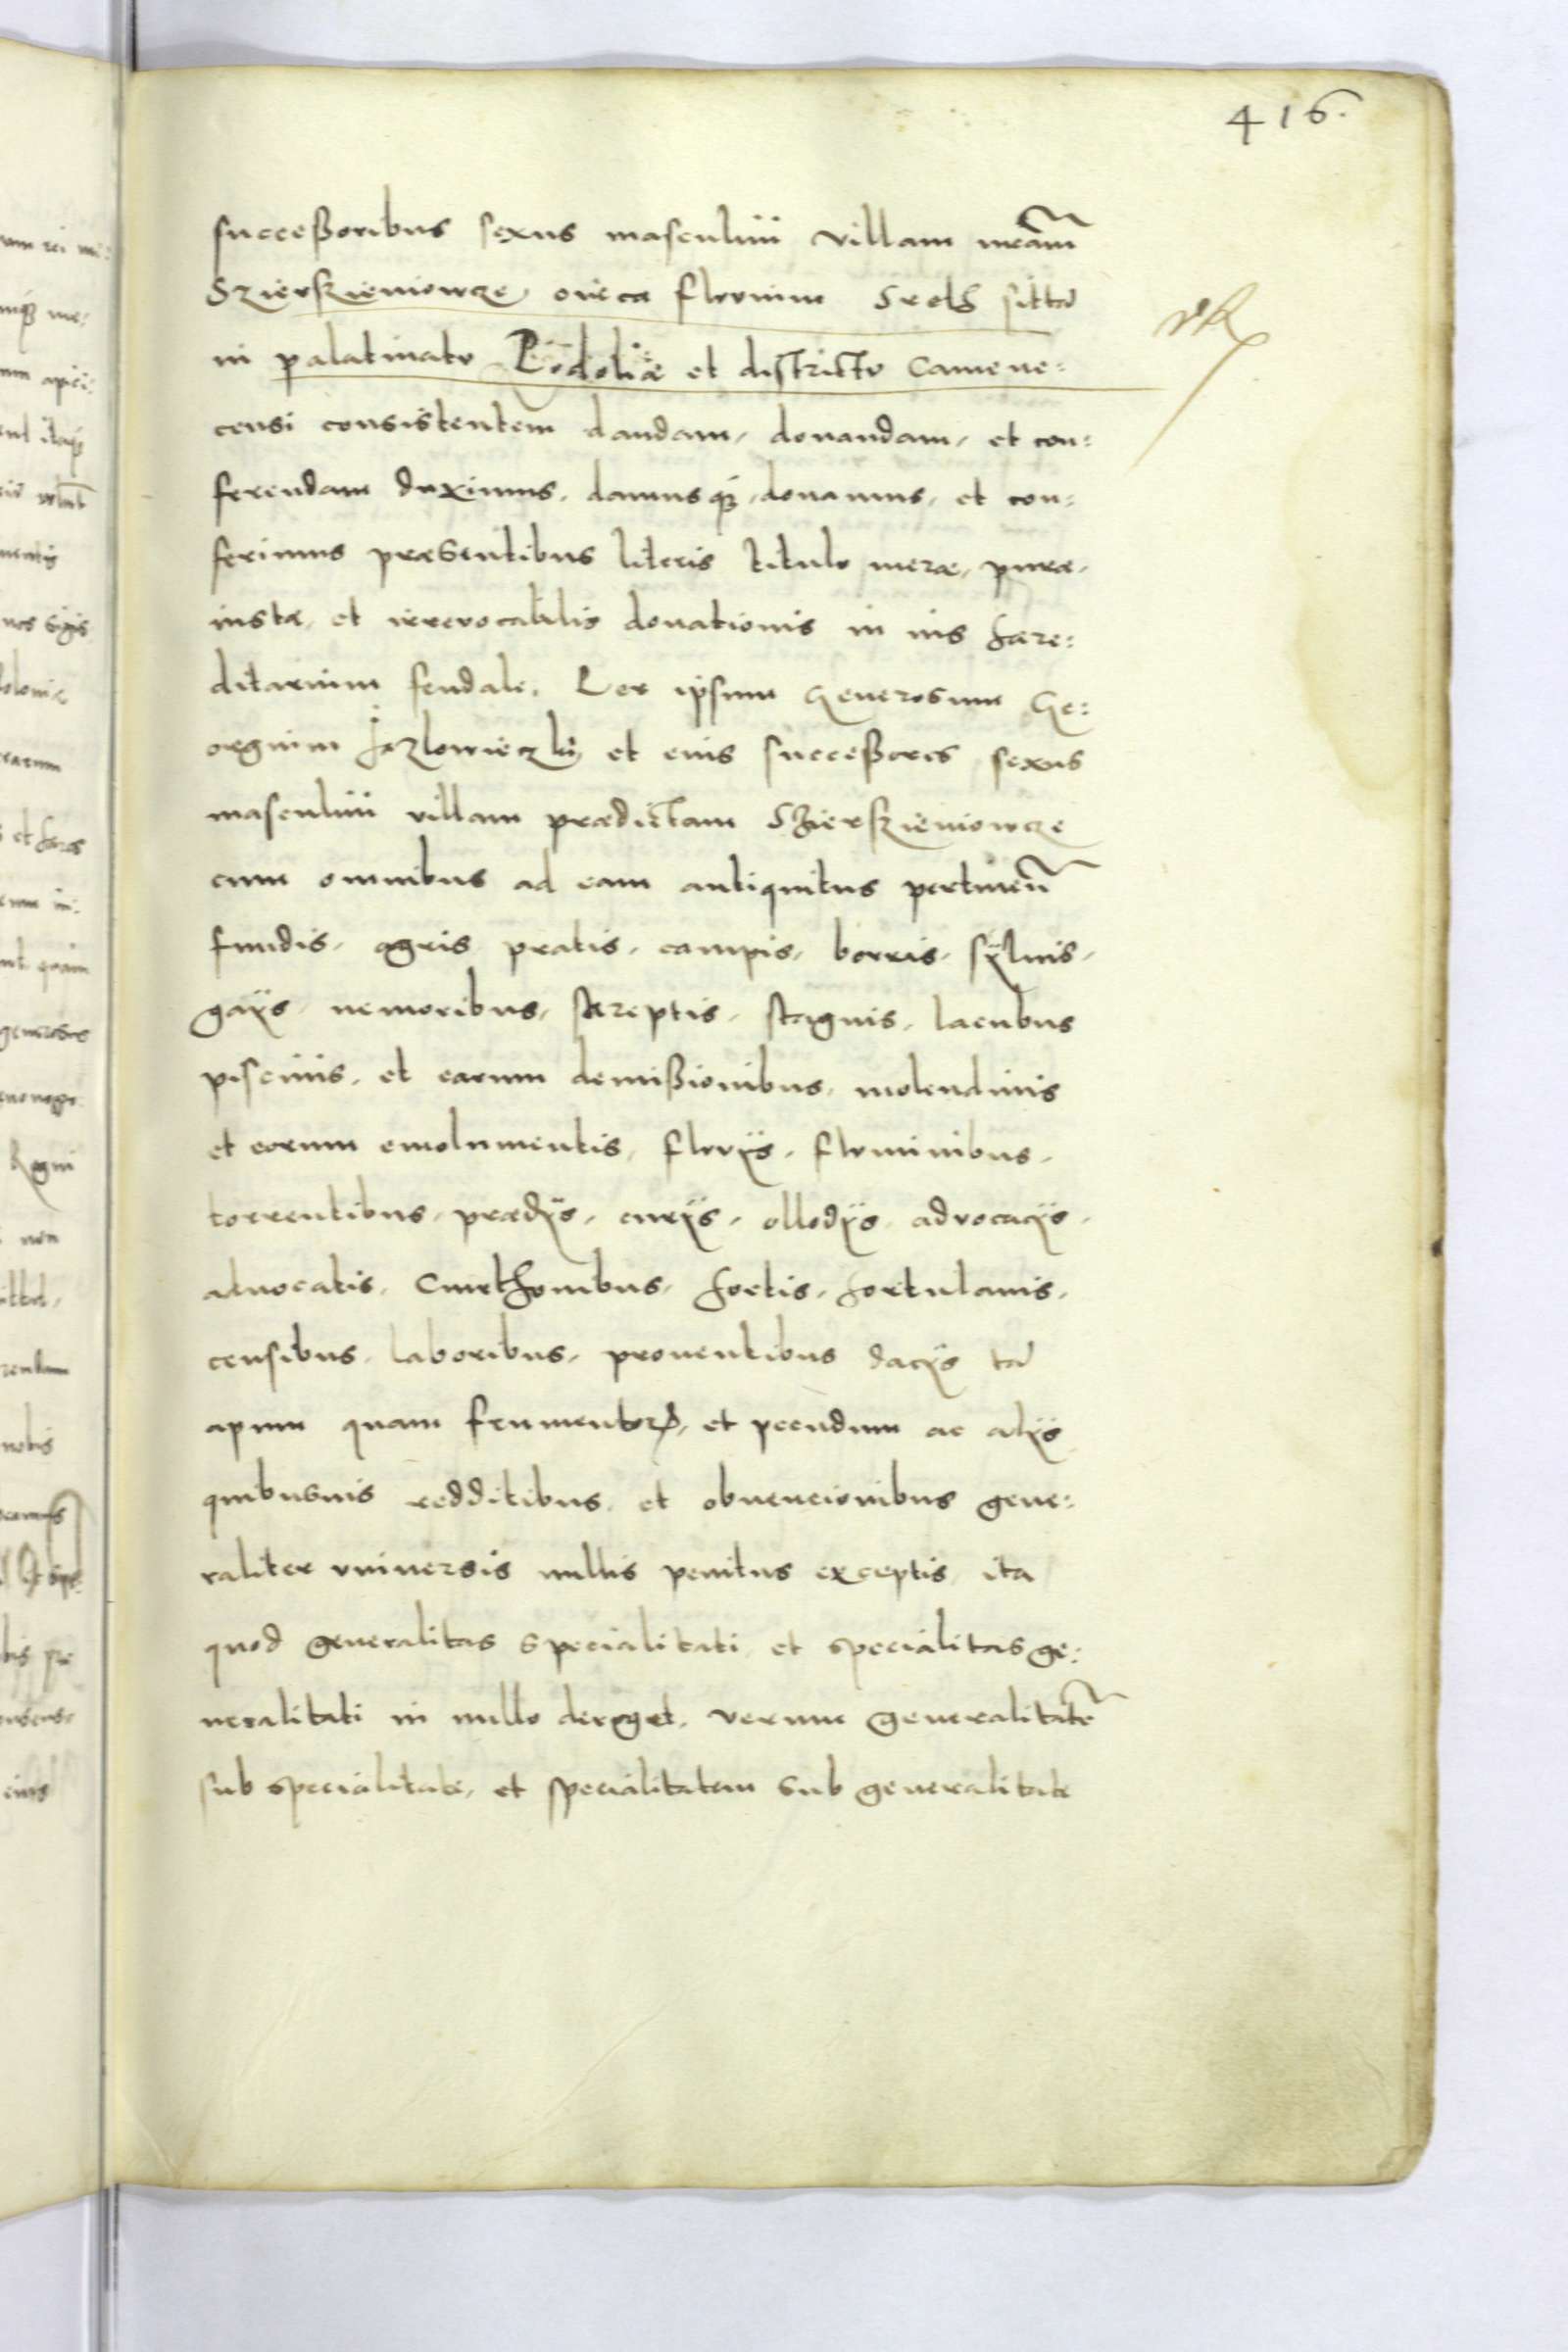 416.
succeßoribus sexus masculini villam nr̃am
Szierszieniowcze circa fluvium Sreth sittā
in palatinatu Podoliæ et districtu Camene:
censi consistentem dandam, donandam, et con:
ferendam duximus, damusq́, donamus, et con:
ferimus præsentibus literis titulo meræ, puræ,
iustæ, et irrevocabilis donationis in ius hære:
ditarium feudale. Per ipsum Generosum Ge:
orgium Jazlowieczki et eius succeßores sexus
masculini villam prædictam Szierszieniowcze
cum omnibus ad eam antiquitus pertineñ
fundis, agris pratis, campis, borris, sÿluis,
gaÿs, nemoribus, stagnis, lacubus
piscinis, et earum demißionibus, molendinis
et eorum emolumentis, fluvÿs, fluminibus,
torrentibus, prædÿs, curÿs, allodÿs advocacÿs,
aduocatis, Cmethonibus, hortis, hortulanis,
censibus, laboribus, prouentibus dacÿs tā
apum quam frumentorꝫ, et pecudum ac alÿs
quibusuis redditibus, et obuencionibus gene:
raliter vniversis nullis penitus exceptis, ita
quod generalitas specialitati et specialitas ge:
neralitati in nullo deroget, verum generalitatē
sub specialitate, et specialitatem sub generalitate